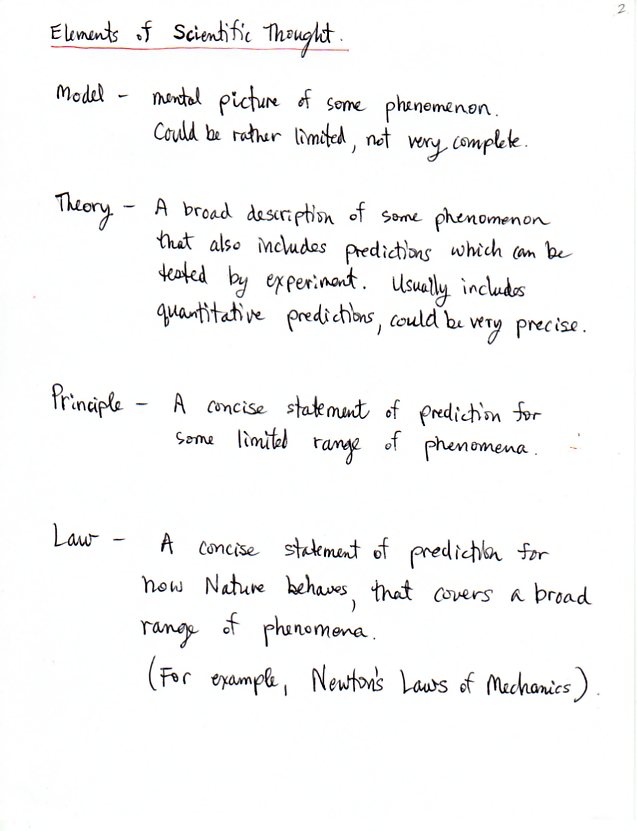 2
Elements of Scientific Thought.
Model - mental picture of some phenomenon.
Could be rather limited, not very complete.
Theory - A broad description of some phenomenon
that also includes predictions which can be
tested by experiment. Usually includes
quantitative predictions, could be very precise.
Principle - A concise statement of prediction for
some limited range of phenomena.
Law - A concise statement of prediction for
how Nature behaves, that covers a broad
range of phenomena.
(For example, Newton's Laws of Mechanics).